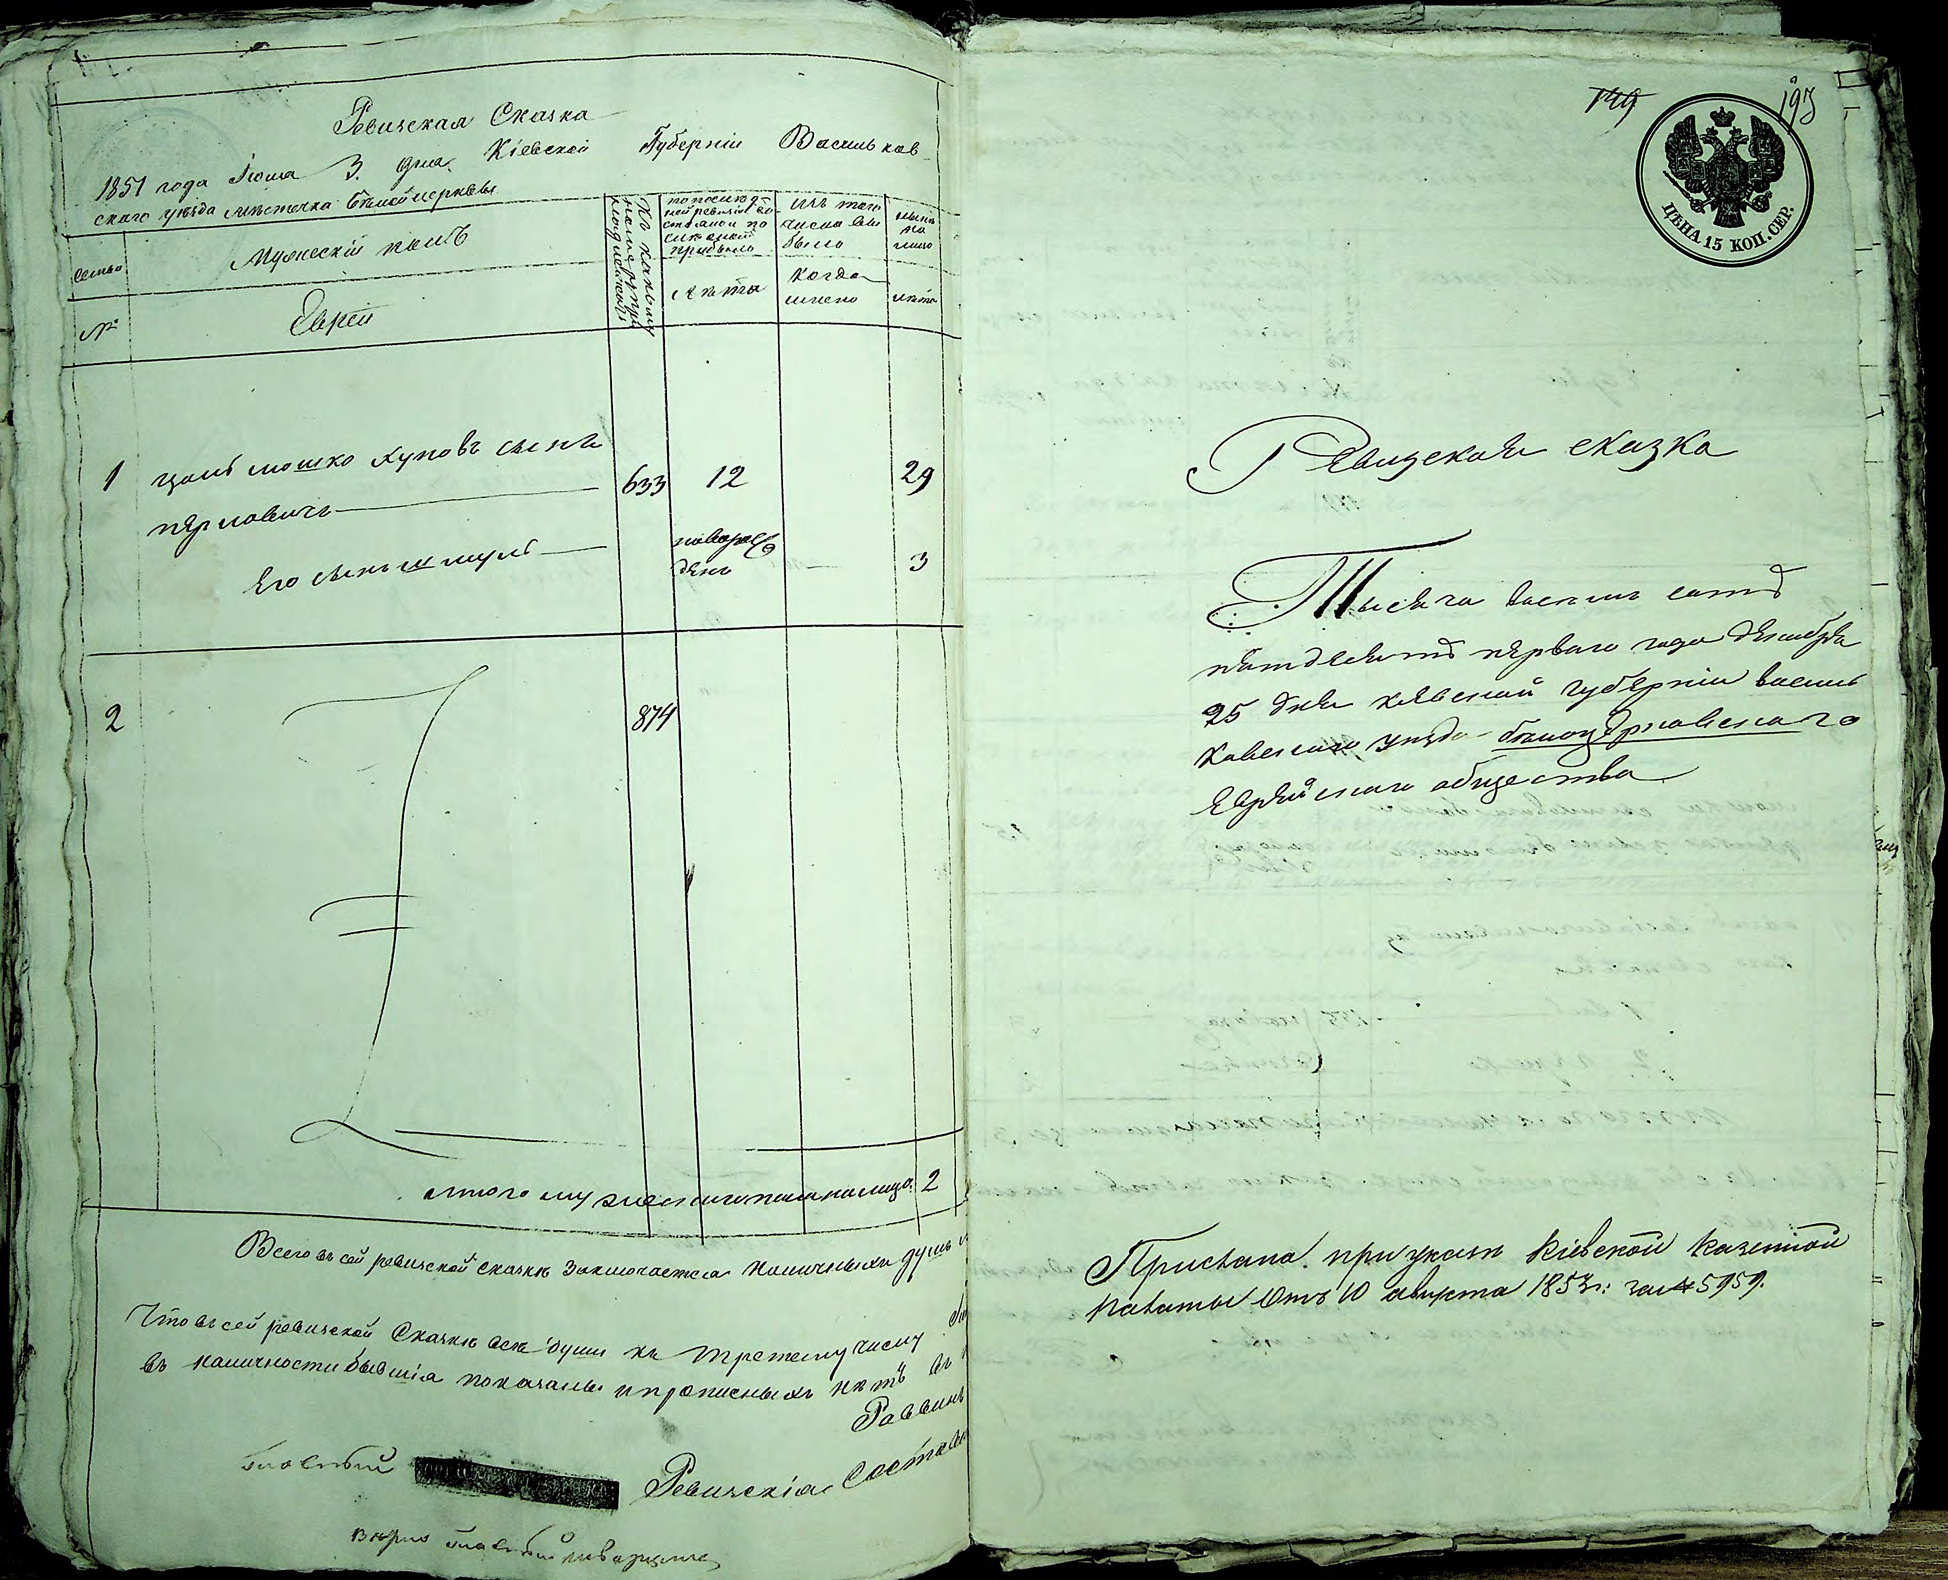 Ревизская Сказка
1851 года Іюля 3. дня. Кіевской Губерніи Васильков-
скаго уезда местечка Белой церквы
семьи
Мужескій полъ
къ какому
по послед-
ней ревизіи со-
стояло и по
прибыло
изъ того
числа вы
было
ныне
на
лицо
№
Евреи
лета
когда
именно
лета
1 мошко Хуновъ сынъ 633 12 29
Его сынъ шмуль новорож 3
денъ
2 874
итого мужескаго пола налицо. 2
Всего въ сей ревизской сказке заключается наличныхъ душъ
Что въ сей ревизской Сказке все души къ третему числу
въ наличности бывшія показаны и прописныхъ нетъ въ
Раввинъ
Ревизскія
верно
149 193
ЦЕНА 15 КОП. СЕР.
Ревизская сказка
Тысяча восемь сотъ
пятдесятъ перваго года декабря
25 дня кіевской губерніи василь
ковскаго уезда белоцерковскаго
Еврейскаго общества
Прислана. при указе Кіевской Казенной
палаты отъ 10 августа 1853 г: за № 5959.